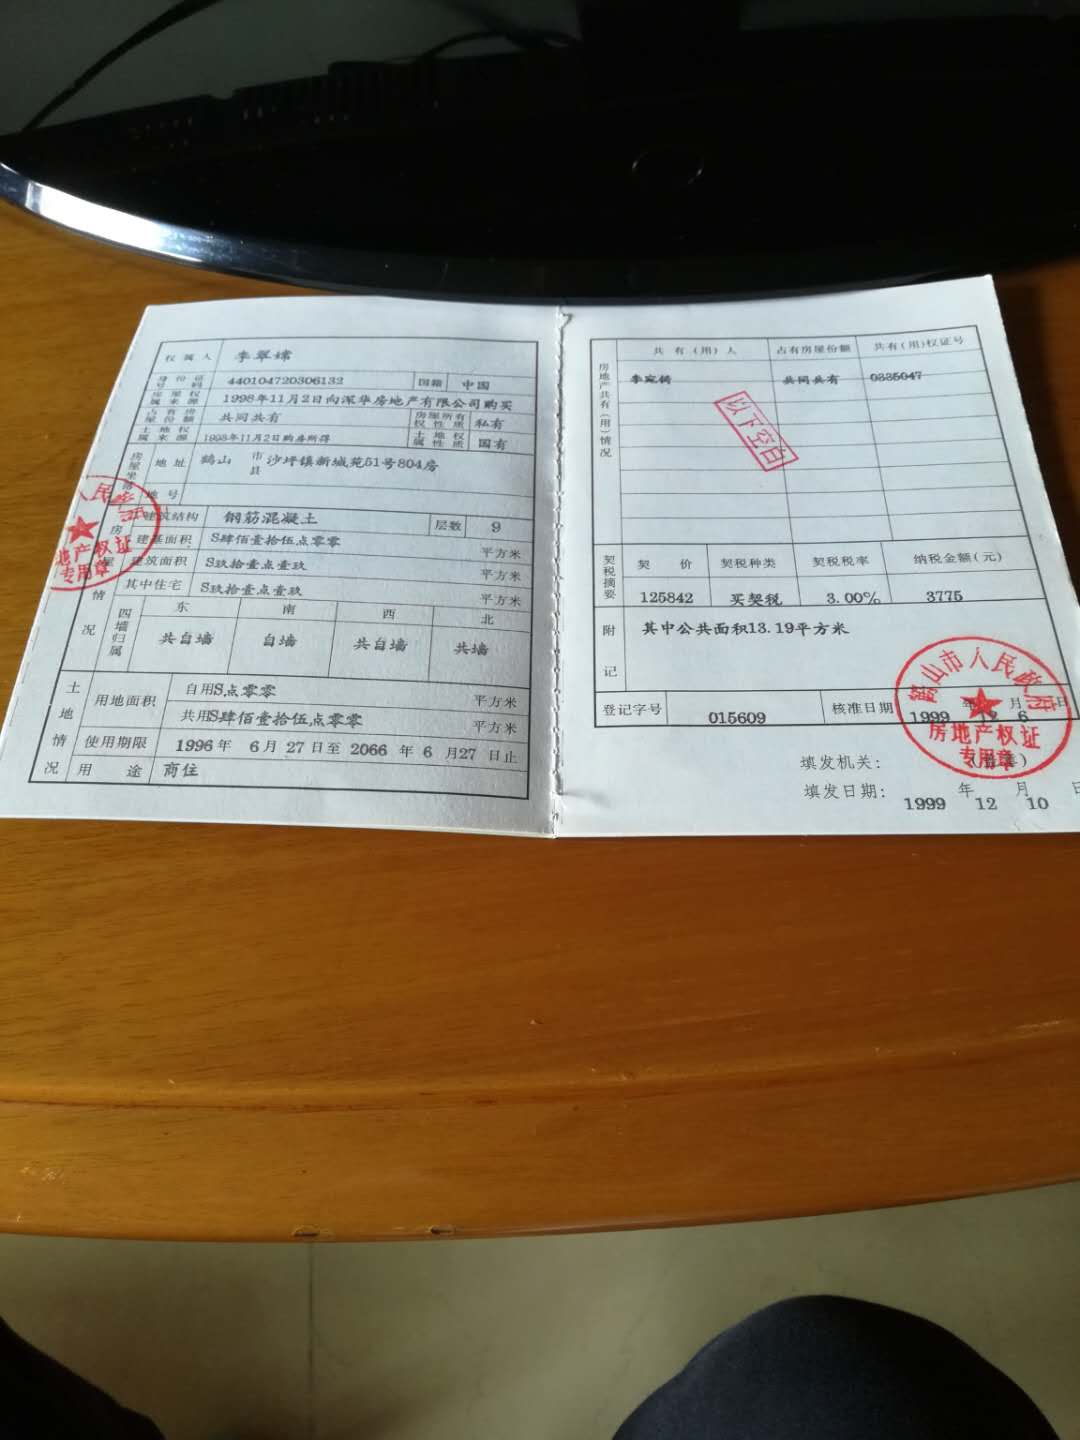 权属人 李翠嫦
身份证号码 440104720306132 国籍 中国
房屋权属来源 1998年11月2日向深华房地产有限公司购买
占有房屋份额 共同共有 房屋所有权性质 私有
土地权属来源 1998年11月2日购房所得 土地权属性质 国有
房屋坐落 地址 鹤山 市县 沙坪镇新城苑51号804房
地号
房屋情况 建筑结构 钢筋混凝土 层数 9
建基面积 S肆佰壹拾伍点零零 平方米
建筑面积 S玖拾壹点壹玖 平方米
其中住宅 S玖拾壹点壹玖 平方米
四墙归属 东 南 西 北
共自墙 自墙 共自墙 共墙
土地情况 用地面积 自用S点零零 平方米
共用S肆佰壹拾伍点零零 平方米
使用期限 1996年 6月27日至 2066年6月27日止
用途 商住
人民
地产权证
专用章
房地产共有(用)情况 共有(用)人 占有房屋份额 共有(用)权证号
李宛 共同共有 0335047
以下空白
契税摘要 契价 契税种类 契税税率 纳税金额(元)
125842 买契税 3.00% 3775
附记 其中公共面积13.19平方米
登记字号 015609 核准日期 1999年12月6日
鹤山市人民政府
房地产权证
专用章
填发机关:
填发日期: 1999年12月10日